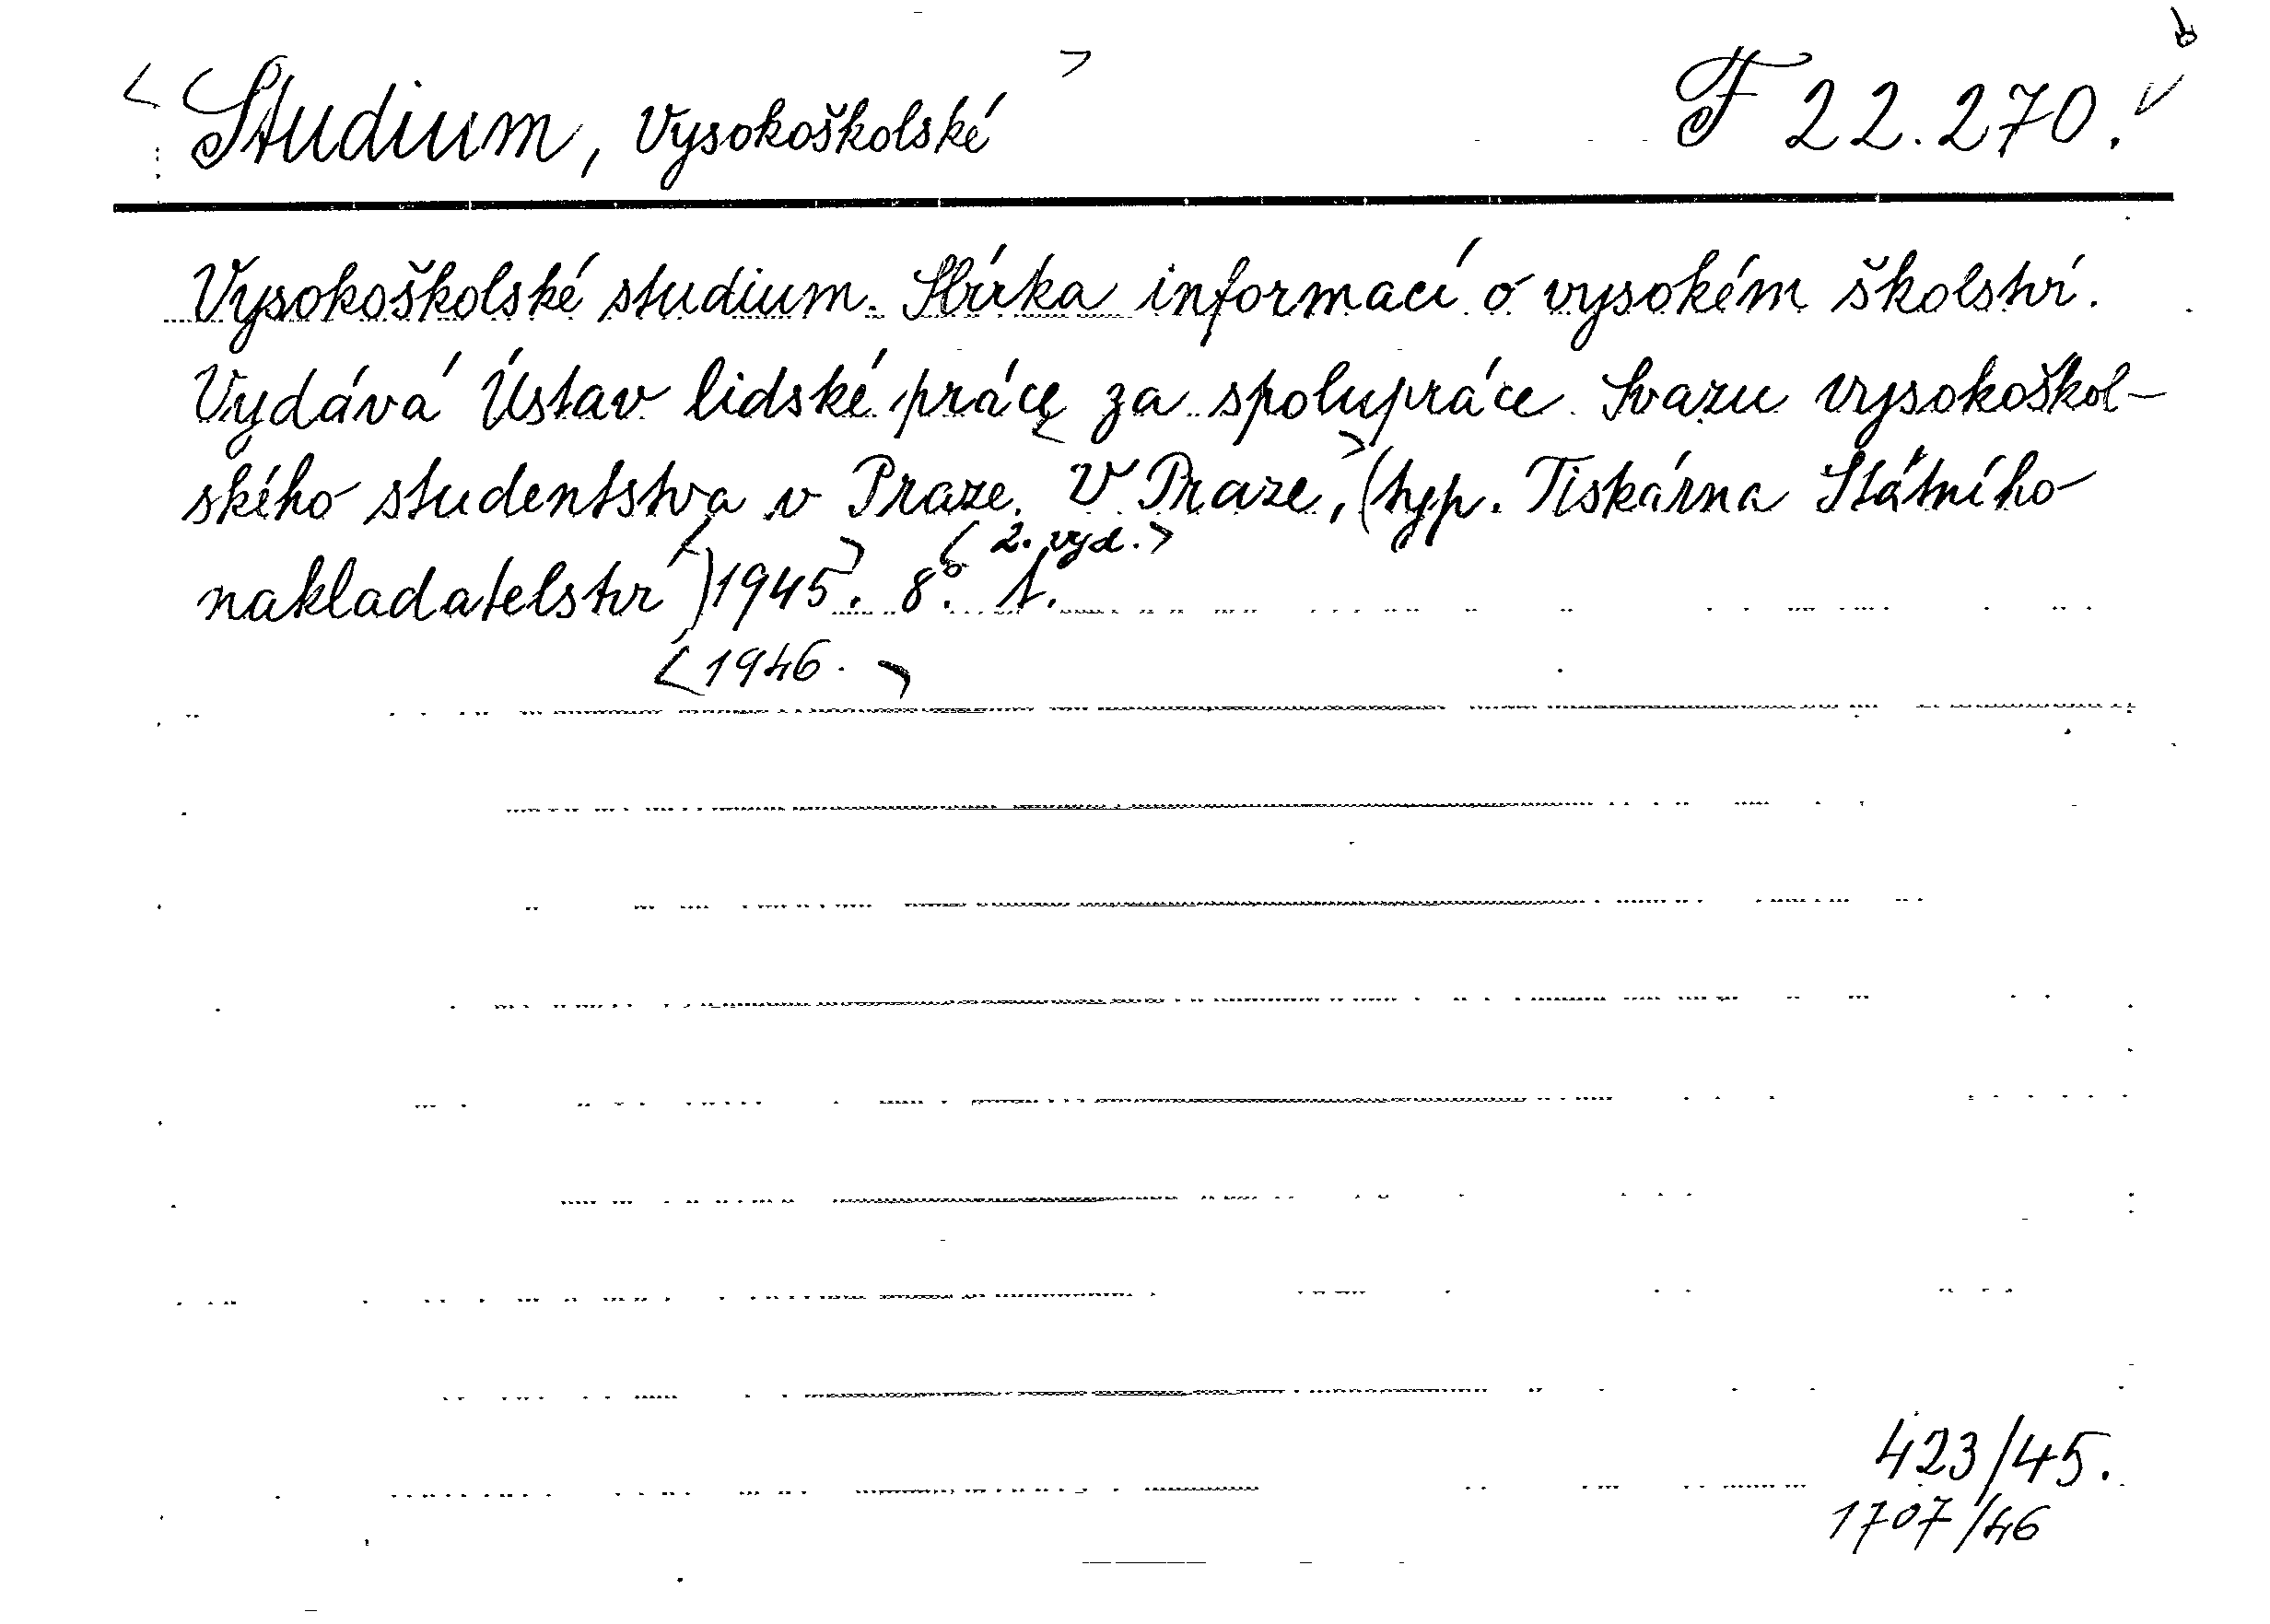 < Studium, Vysokoškolské > F 22.270. v
Vysokoškolské studium. Sbírka informací o vysokém školství.
Vydává Ústav lidské práce za spolupráce Svazu vysokoškol-
ského studentstva v Praze. < V Praze, > (typ. Tiskárna Státního
nakladatelství) < 1945. > 8°. 1. < 2. vyd. >
< 1946. >
423/45.
1707/46